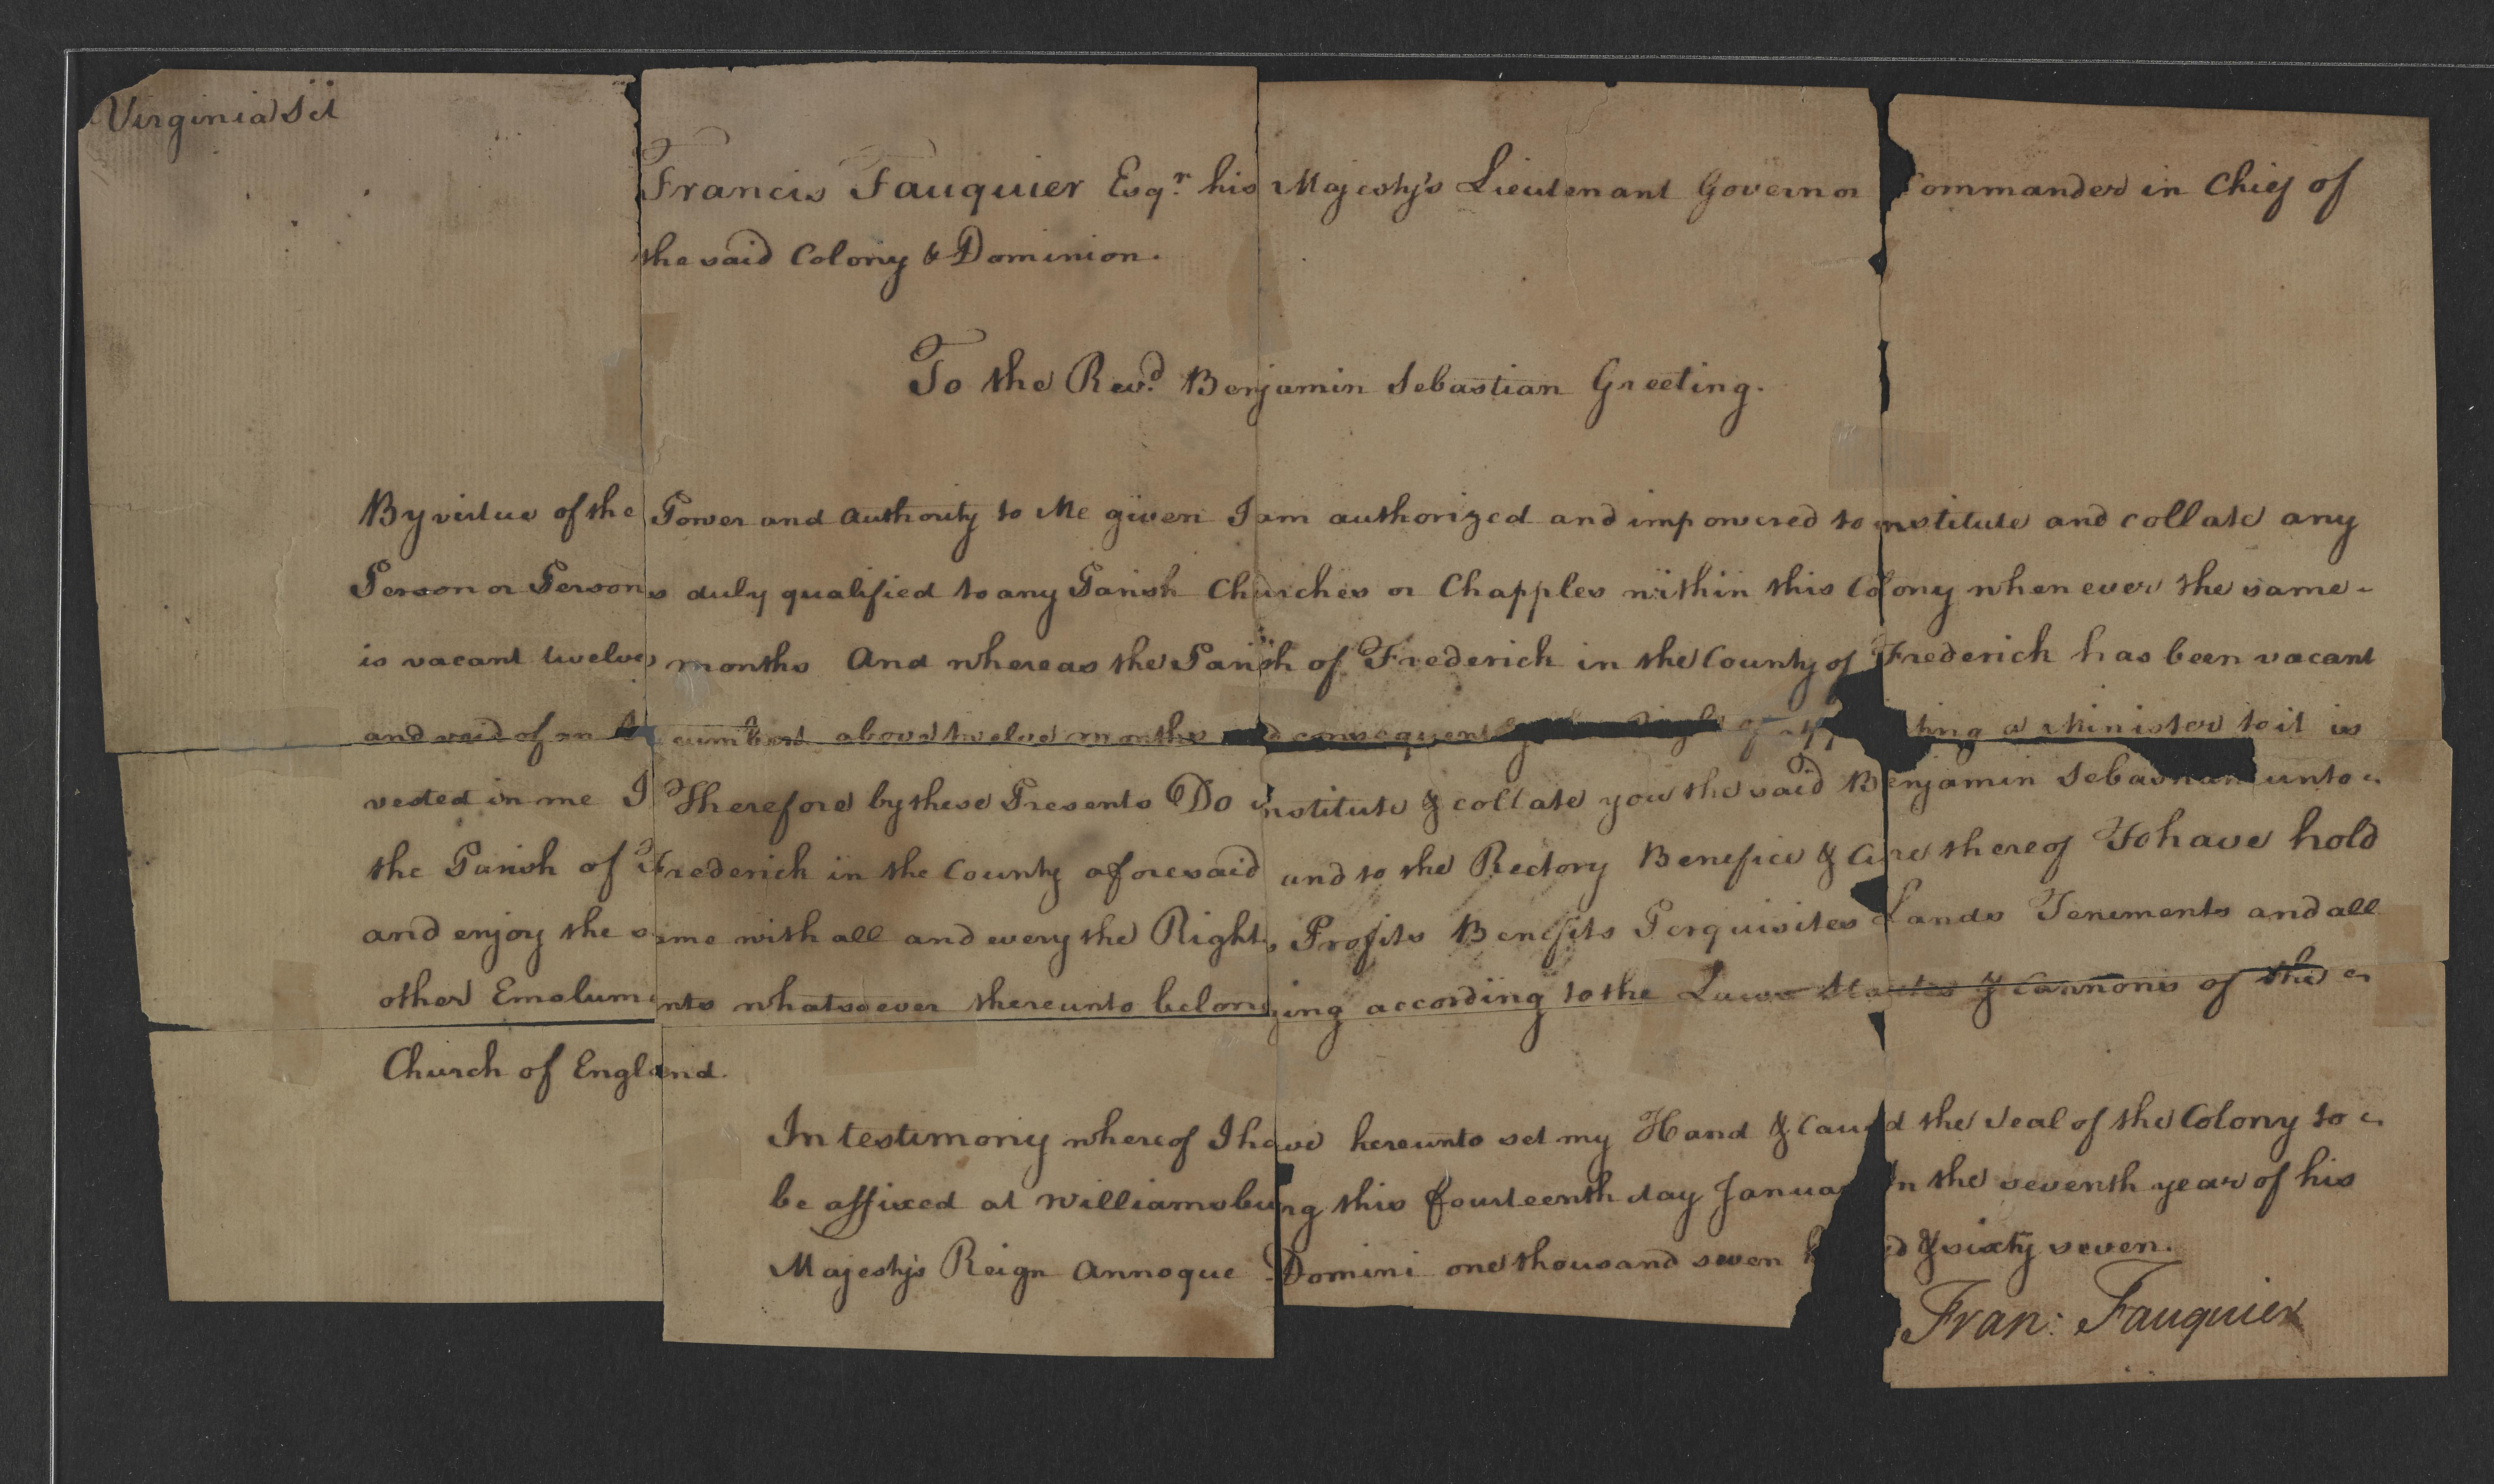 Virginia Sct
Francis Fauquier Esqr. his Majesty's Lieutenant Governor Commander in Chief of
the said Colony & Dominion.
To the Revd. Benjamin Sebastian Greeting.
By virtue of the Power and Authority to Me given I am authorized and impowered to institute and collate any
Person or Persons duly qualified to any Parish Churches or Chapples within this Colony when ever the same
is vacant twelve months And whereas the Parish of Frederick in the County of Frederick has been vacant
and void of an Incumbent above twelve months and consequently the Right of ting a Minister to it is
vested in me I Therefore by these Presents Do institute & collate you the said Benjamin Sebastian unto
the Parish of Frederick in the County aforesaid and to the Rectory Benefice & Cure thereof To have hold
and enjoy the same with all and every the Rights, Profits Benefits Perquisites Lands Tenements and all
other Emoluments whatsoever thereunto belonging according to the Laws & Cannons of the
Church of England.
In testimony whereof I have hereunto set my Hand & Caused the Seal of the Colony to
be affixed at Williamsburg this fourteenth day January In the seventh year of his
Majesty's Reign Annoque Domini one thousand seven h d & sixty seven.
Fran: Fauquier